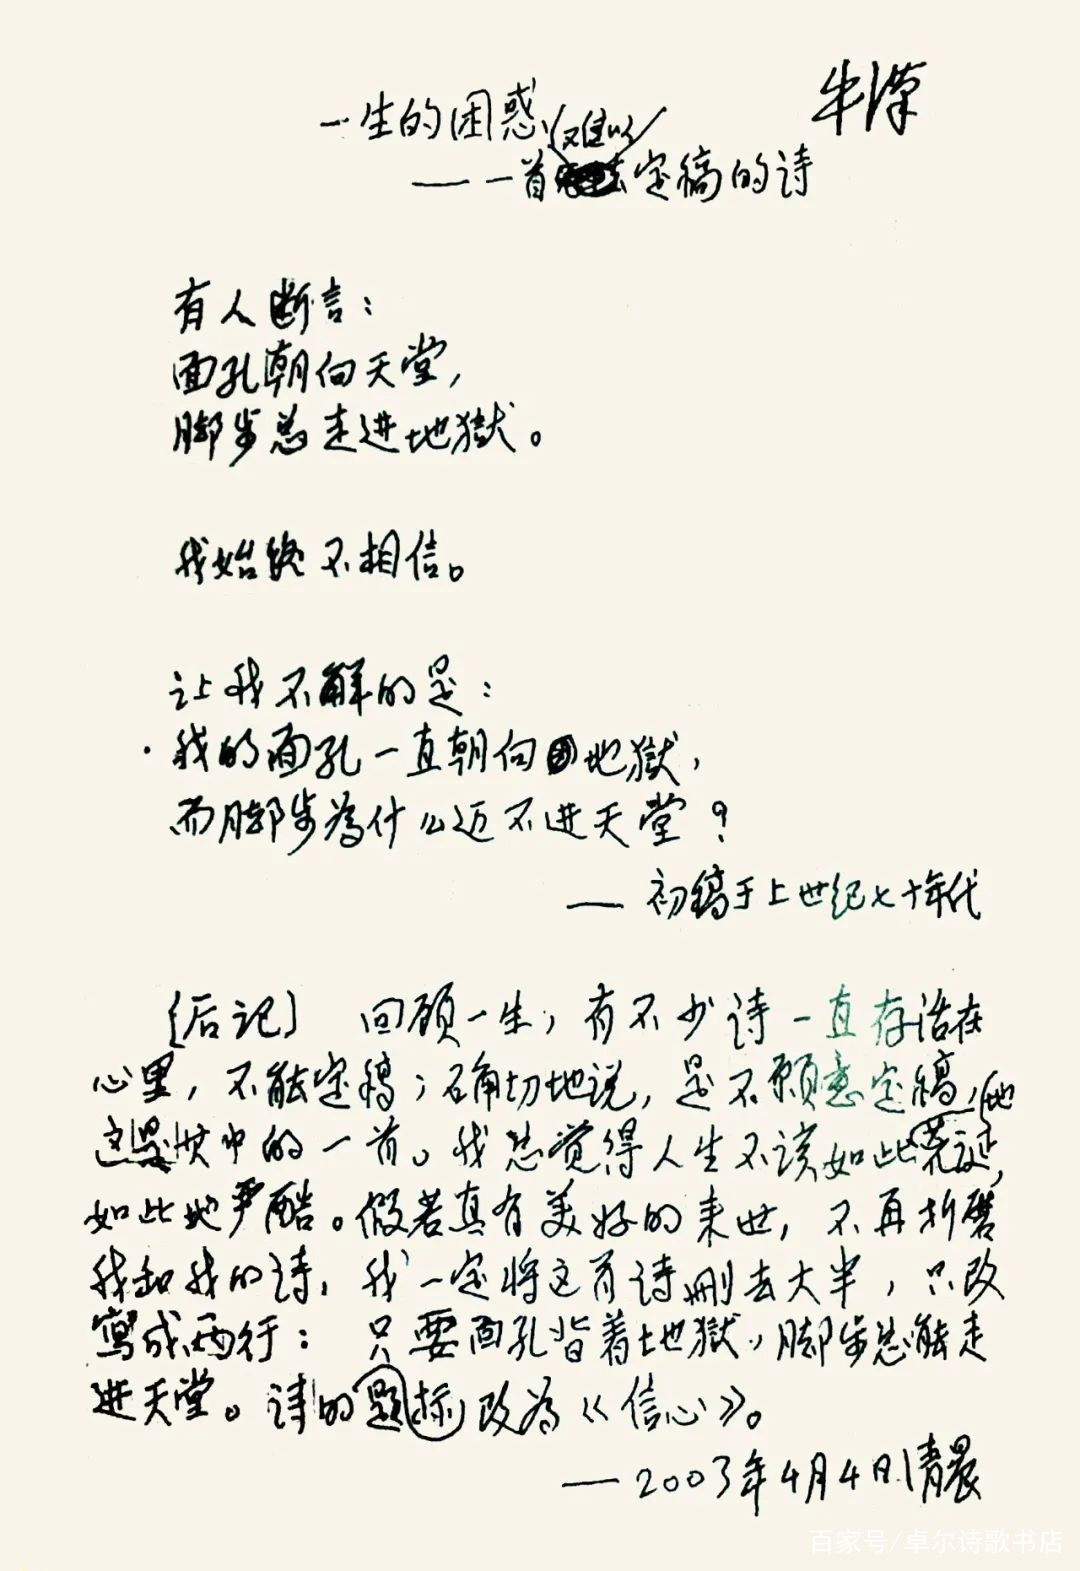 一生的困惑
牛漢
难以
——一首定稿的诗
有人断言：
面孔朝向天堂，
脚步总走进地獄。
我始终不相信。
让我不解的是：
·我的面孔一直朝向地獄，
而脚步為什么迈不进天堂？
——初稿于上世纪七十年代
〔后记〕 回顾一生，有不少诗一直存活在
心里，不能定稿；确切地说，是不願意定稿，
这是其中的一首。我总觉得人生不该如此荒诞，
如此地严酷。假若真有美好的来世，不再折磨
我和我的诗，我一定将这首诗删去大半，只改
寫成两行：只要面孔背着地獄，脚步总能走
进天堂。诗的题标改为《信心》。
——2003年4月4日清晨
百家号/卓尔诗歌书店